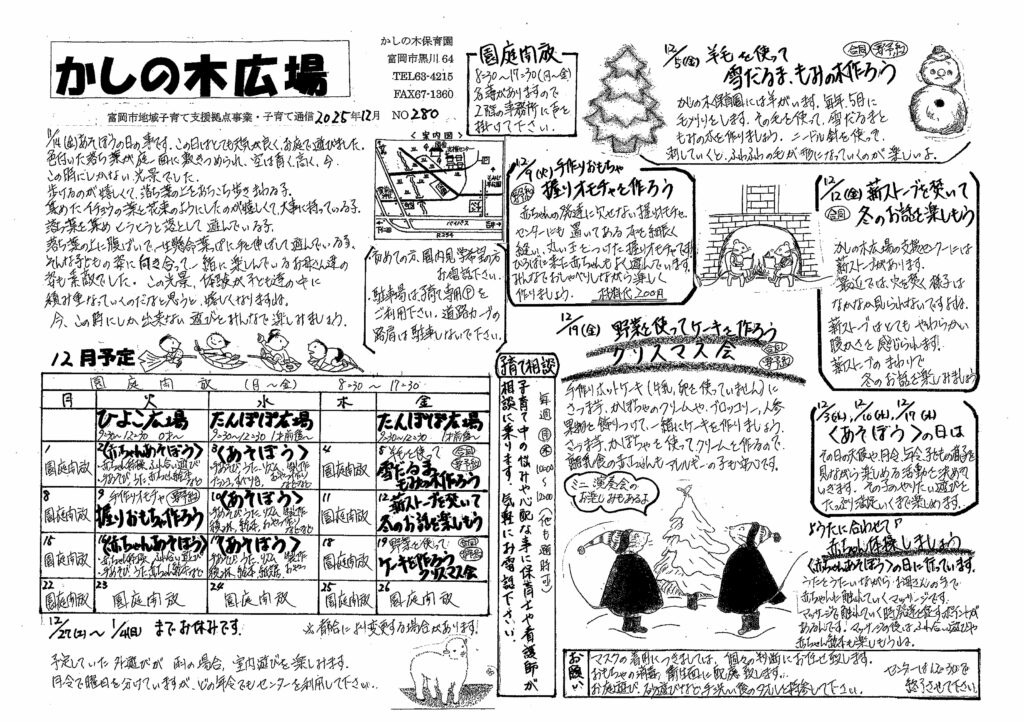 かしの木広場
かしの木保育園
富岡市黒川64
TEL63-4215
FAX67-1360
富岡市地域子育て支援拠点事業・子育て通信 2025年12月 NO280
11/14(金)あそぼうの日の事です。この日はとても天気が良く、お庭で遊びました。
色付いた落ち葉が庭一面に敷きつめられ、空は青く高く、今
この時にしかない光景でした。
歩けるのが嬉しくて、落ち葉の上をあちこち歩きまわる子。
集めたイチョウの葉を花束のようにしたのが嬉しくて、大事に持っている子。
落ち葉を集め
落として遊んでいる子。
落ち葉の上に腹ばいで、一生懸命葉っぱに手を伸ばして遊んでいる子。
そんな子どもの姿に向き合って、一緒に楽しんでいるお母さん達の
姿も素敵でした。この光景、体験が子ども達の中に
積み重なっていくのだなと思うと、嬉しくなりますね。
今、この時にしか出来ない遊びをみんなで楽しみましょう。
<案内図>
R254
バイパス
初めての方、園内見学希望の方
お電話下さい。
・駐車場は子育て専用Ⓟを
ご利用下さい。道路カーブの
路肩は駐車しないで下さい。
園庭開放
8:30～17:30(月～金)
名簿がありますので
2階の事務所に声を
掛けて下さい。
12/5(金) 羊毛を使って
雪だるま、もみの木作ろう
合同 要予約
かしの木保育園には羊がいます。毎年、5月に
毛刈りをします。その毛を使って、雪だるまと
もみの木を作りましょう。ニードル針を使って、
刺していくと、ふわふわの毛が形になっていくのが楽しいよ。
12/9(火) 手作りおもちゃ
要予約 握りオモチャを作ろう
赤ちゃんの発達に欠せない握りオモチャ。
センターにも置いてある布を細長く
縫い、丸い玉をつけた握りオモチャです。
ひろばに来た赤ちゃんもよく遊んでいます。
みんなでおしゃべりしながら楽しく
作りましょう。 材料代200円
12/12(金) 薪ストーブを焚いて
合同 冬のお話を楽しもう
かしの木広場の支援センターには
薪ストーブがあります。
最近では、火を焚く様子は
なかなか見られないですよね。
薪ストーブはとてもやわらかい
暖かさを感じられます。
薪ストーブのまわりで
冬のお話を楽しみましょう
12/19(金) 野菜を使ってケーキを作ろう
クリスマス会
合同 要予約
手作りホットケーキ(牛乳、卵を使っていません)に
さつま芋、かぼちゃのクリームや、ブロッコリー、人参
果物を飾りつけて、一緒にケーキを作りましょう。
さつま芋、かぼちゃを使ってクリームを作るので、
離乳食の赤ちゃんもアレルギーの子も安心です。
ミニ演奏会の
お楽しみもあるよ
12/3(水)、12/10(水)、12/17(水)
<あそぼう>の日は
その日の天候や月令、年令、子どもの様子を
見ながら楽しめる活動を決めて
いきます。その子のやりたい遊びを
たっぷり満足いくまで楽しめます。
♪うたに合わせて♪
赤ちゃん体操しましょう
<赤ちゃんあそぼう>の日に行っています。
うたをうたいながらお母さんの手で
赤ちゃんに触れていくマッサージです。
マッサージで触れていく時、発達を促すポイントが
あるんです。マッサージの後は、ふれ合い遊びや
赤ちゃん絵本も楽しもうね。
12月予定
園庭開放 (月～金) 8:30～17:30
月 火 水 木 金
ひよこ広場 たんぽぽ広場 たんぽぽ広場
9:30～12:30 0才～ 9:30～12:30 1才前後～ 9:30～12:30 1才前後～
1 園庭開放
2 <赤ちゃんあそぼう>
3 <あそぼう>
4 園庭開放
5 羊毛を使って 合同 要予約 雪だるま もみの木作ろう
8 園庭開放
9 手作りオモチャ 要予約 握りおもちゃ作ろう
10 <あそぼう>
11 園庭開放
12 薪ストーブを焚いて 冬のお話を楽しもう
15 園庭開放
16 <赤ちゃんあそぼう>
17 <あそぼう>
18 園庭開放
19 野菜を使って 合同 要予約 ケーキを作ろう クリスマス会
22 園庭開放
23 園庭開放
24 園庭開放
25 園庭開放
26 園庭開放
12/27(土)～1/4(日)までお休みです。
※都合により変更する場合があります。
予定していた外遊びが雨の場合、室内遊びを楽しみます。
月令で曜日を分けていますが、どの年令でもセンターを利用して下さい。
育て相談
毎週 月 木 10:00～12:00 (他も随時可)
子育て中の悩みや心配な事に保育士や看護師が
相談に乗ります。気軽にお電話下さい。
お願い
マスクの着用につきましては、個々の判断にお任せ致します。
おもちゃの消毒、衛生面に配慮致します。
お庭遊び、砂遊びなど手洗い後のタオルを持参して下さい。
センターは12:30で
終了させて下さい。